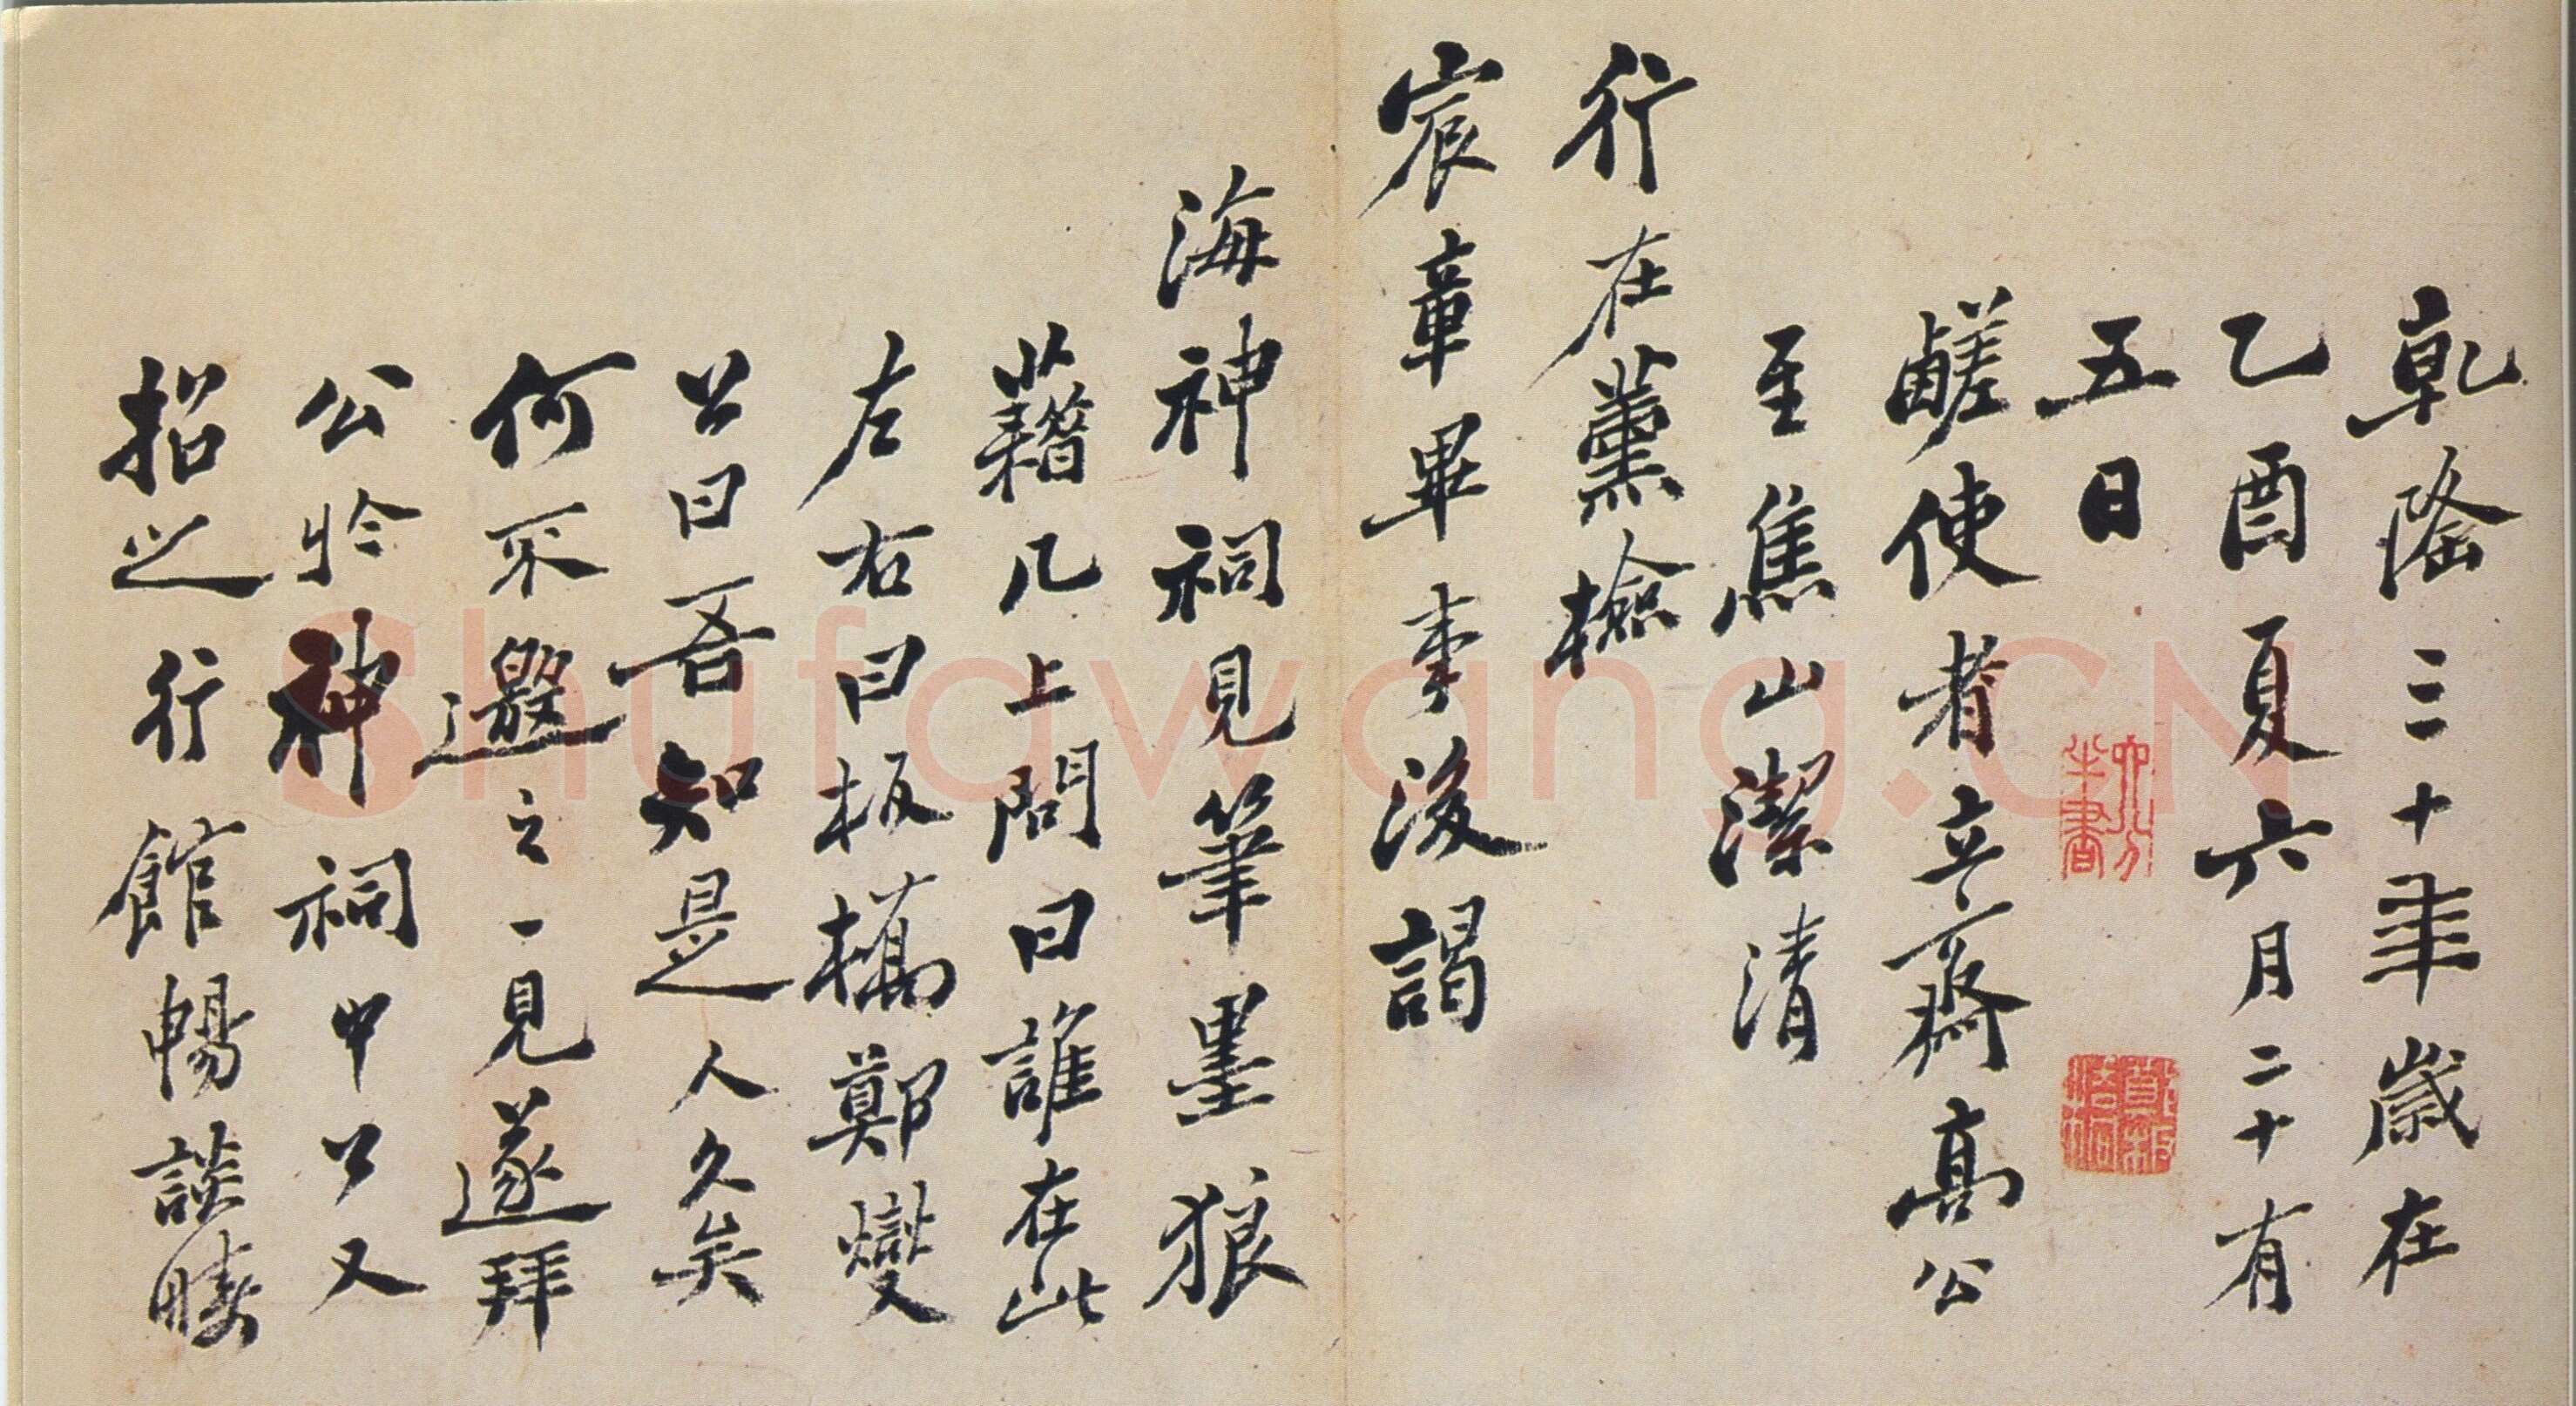 乾隆三十年歲在
乙酉夏六月二十有
五日
鹺使者立齋高公
至焦山潔清
行在薰檢
宸章畢事後謁
海神祠見筆墨狼
藉几上問曰誰在此
左右曰板橋鄭燮
公曰吾知是人久矣
何不邀之一見遂拜
公於神祠中公又
招之行館暢談
六分半書
Shufawang.CN